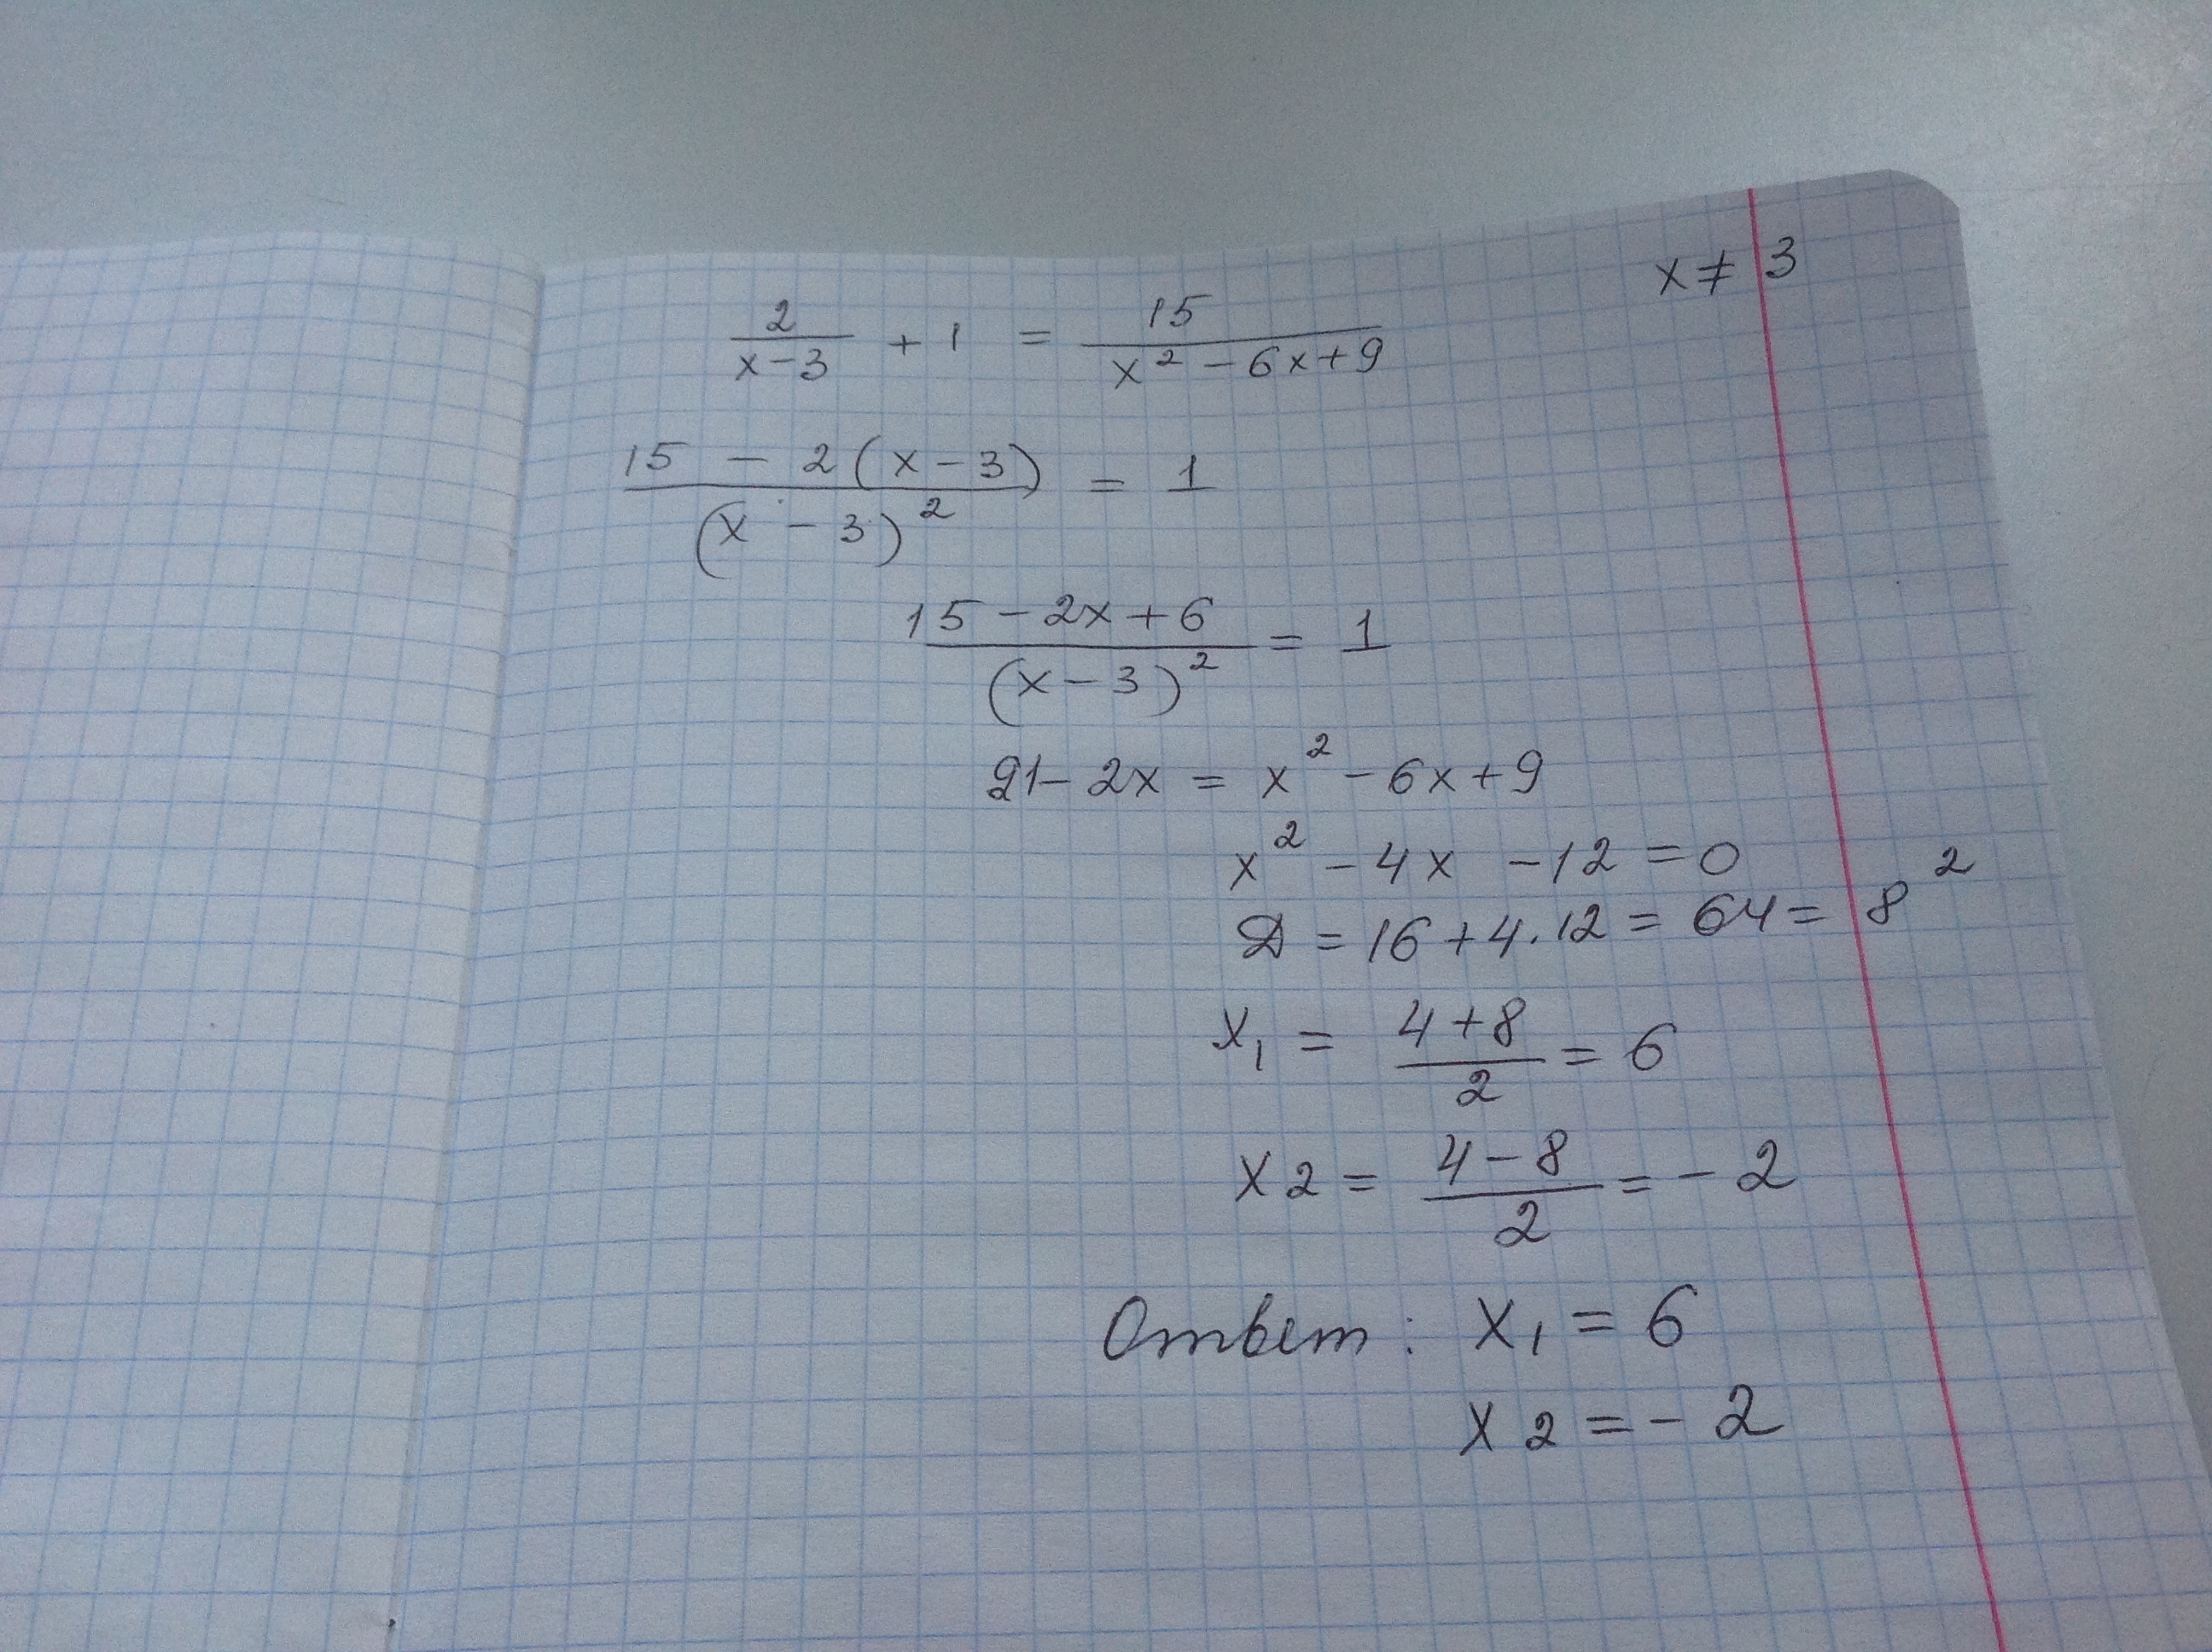 x ≠ 3
2/(x-3) + 1 = 15/(x² - 6x + 9)
(15 - 2(x-3))/(x - 3)² = 1
(15 - 2x + 6)/(x-3)² = 1
21 - 2x = x² - 6x + 9
x² - 4x - 12 = 0
Д = 16 + 4·12 = 64 = 8²
x₁ = (4+8)/2 = 6
x2 = (4-8)/2 = -2
Ответ: x₁ = 6
x2 = -2